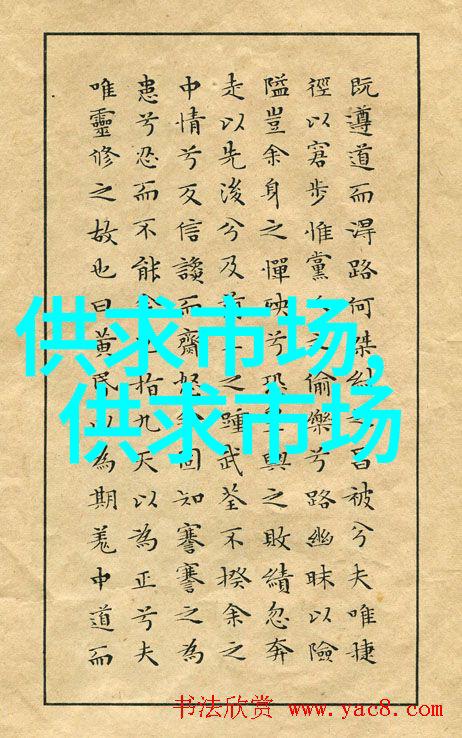 既遵道而淂路何桀紂昌被兮夫唯捷
徑以窘步惟黨偷樂兮路幽昧以險
隘豈余身之憚殃兮恐輿之敗績忽奔
走以先後兮及前之踵武荃不揆余之
中情兮反信讒而齌怒固知謇謇之為
患兮忍而不能指九天以為正兮夫
唯靈修之故也曰黃昏以為期羌中道而
供求市场,
供求市场
书法欣赏 www.yac8.com